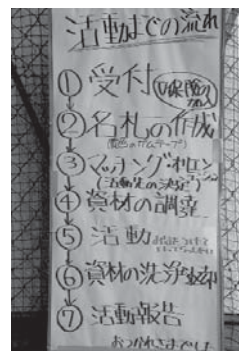 活動までの流れ
① 受付 保険の加入
② 名札の作成
(黄色のガムテープ)
③ マッチング・オリエン
(活動先の決定)
④ 資材の調達
⑤ 活動
⑥ 資材の洗浄・返却
⑦ 活動報告
おつかれさまでした